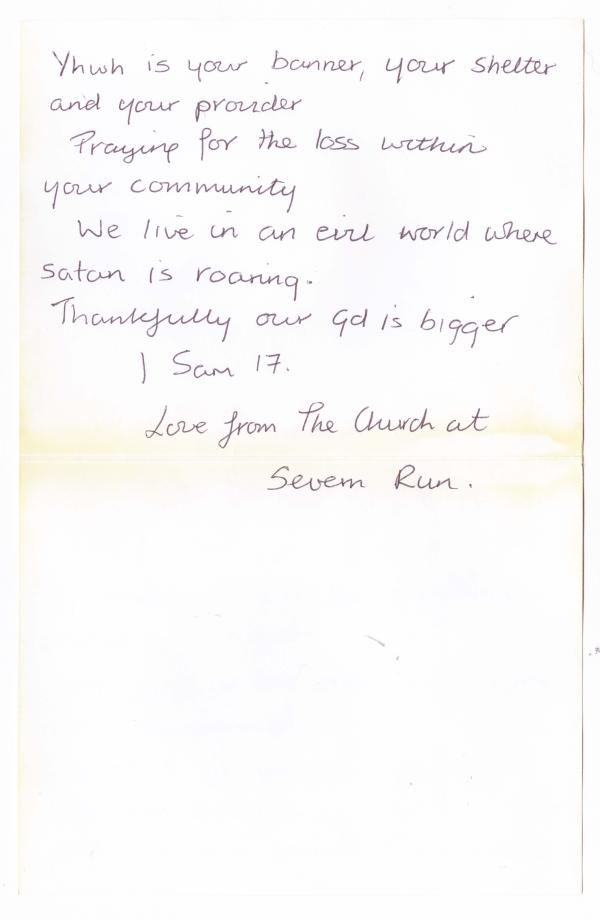 Yhwh is your banner, your shelter
and your provider
Praying for the loss within
your community
We live in an evil world where
satan is roaring.
Thankfully our Gd is bigger
1 Sam 17.
Love from The Church at
Severn Run.